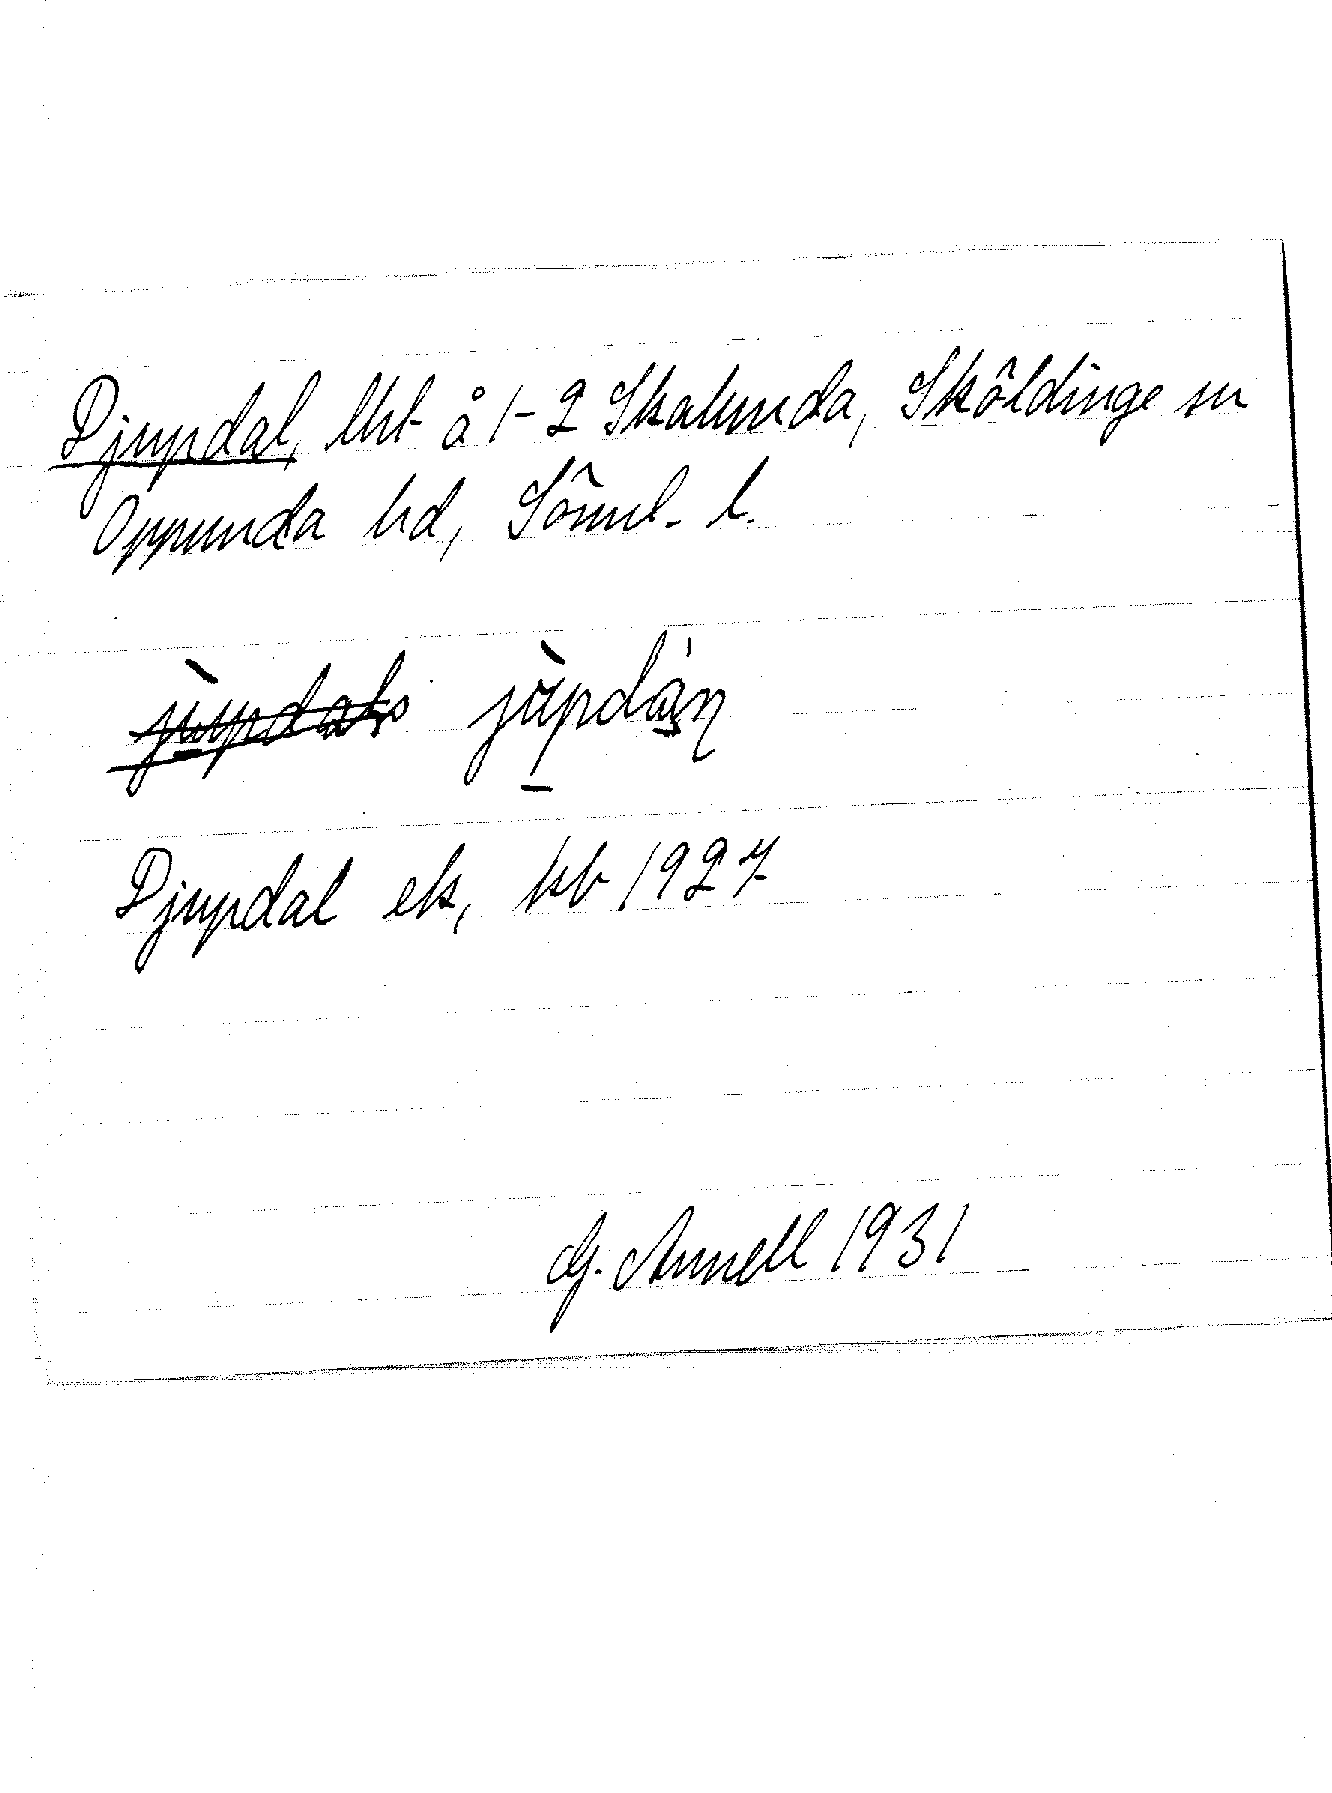 Djupdal, lht å 1-2 Skalunda, Sköldinge sn
Oppunda hd, Söml. l.
Djupdal ek, kb 1927
G. Annell 1931